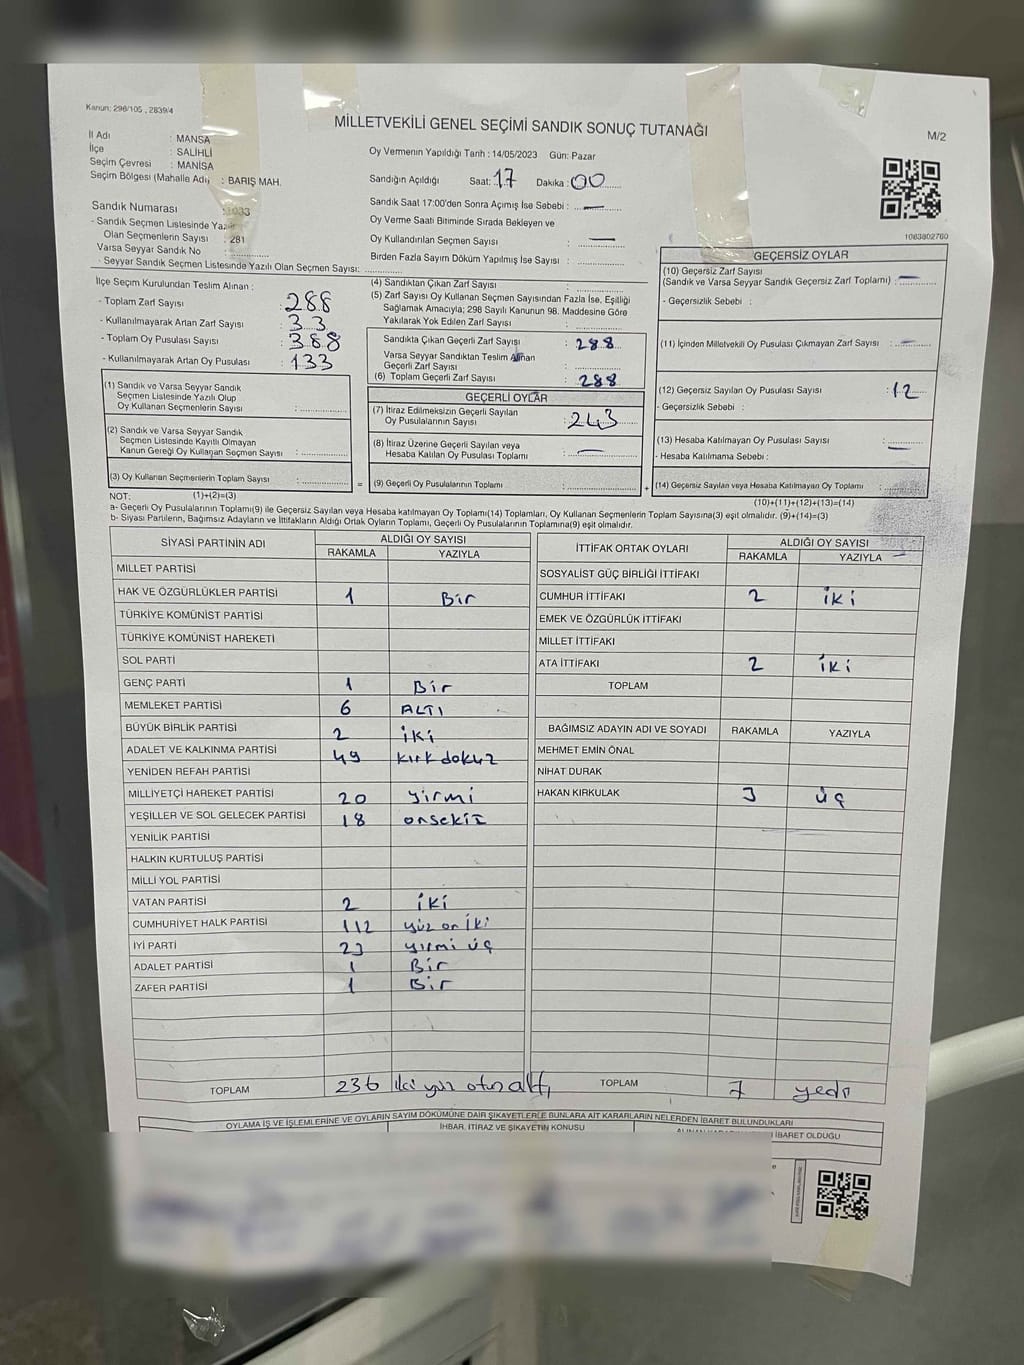 Kanun: 298/105 , 2839/4
MİLLETVEKİLİ GENEL SEÇİMİ SANDIK SONUÇ TUTANAĞI
M/2
İl Adı : MANİSA
İlçe : SALİHLİ
Seçim Çevresi : MANİSA
Seçim Bölgesi (Mahalle Adı) : BARIŞ MAH.
Sandık Numarası : 1033
- Sandık Seçmen Listesinde Yazılı
Olan Seçmenlerin Sayısı : 281
Varsa Seyyar Sandık No :
- Seyyar Sandık Seçmen Listesinde Yazılı Olan Seçmen Sayısı:
Oy Vermenin Yapıldığı Tarih : 14/05/2023 Gün: Pazar
Sandığın Açıldığı Saat: 17 Dakika : 00
Sandık Saat 17:00'den Sonra Açılmış İse Sebebi : —
Oy Verme Saati Bitiminde Sırada Bekleyen ve
Oy Kullandırılan Seçmen Sayısı : —
Birden Fazla Sayım Döküm Yapılmış İse Sayısı :
1063802760
İlçe Seçim Kurulundan Teslim Alınan :
- Toplam Zarf Sayısı : 288
- Kullanılmayarak Artan Zarf Sayısı : 33
- Toplam Oy Pusulası Sayısı : 388
- Kullanılmayarak Artan Oy Pusulası : 133
(1) Sandık ve Varsa Seyyar Sandık
Seçmen Listesinde Yazılı Olup
Oy Kullanan Seçmenlerin Sayısı :
(2) Sandık ve Varsa Seyyar Sandık
Seçmen Listesinde Kayıtlı Olmayan
Kanun Gereği Oy Kullanan Seçmen Sayısı :
(3) Oy Kullanan Seçmenlerin Toplam Sayısı :
(4) Sandıktan Çıkan Zarf Sayısı :
(5) Zarf Sayısı Oy Kullanan Seçmen Sayısından Fazla İse, Eşitliği
Sağlamak Amacıyla; 298 Sayılı Kanunun 98. Maddesine Göre
Yakılarak Yok Edilen Zarf Sayısı :
Sandıkta Çıkan Geçerli Zarf Sayısı : 288
Varsa Seyyar Sandıktan Teslim Alınan
Geçerli Zarf Sayısı :
(6) Toplam Geçerli Zarf Sayısı : 288
GEÇERLİ OYLAR
(7) İtiraz Edilmeksizin Geçerli Sayılan
Oy Pusulalarının Sayısı : 243
(8) İtiraz Üzerine Geçerli Sayılan veya
Hesaba Katılan Oy Pusulası Toplamı : —
= (9) Geçerli Oy Pusulalarının Toplamı :
GEÇERSİZ OYLAR
(10) Geçersiz Zarf Sayısı
(Sandık ve Varsa Seyyar Sandık Geçersiz Zarf Toplamı) : —
- Geçersizlik Sebebi :
(11) İçinden Milletvekili Oy Pusulası Çıkmayan Zarf Sayısı : —
(12) Geçersiz Sayılan Oy Pusulası Sayısı : 12
- Geçersizlik Sebebi :
(13) Hesaba Katılmayan Oy Pusulası Sayısı :
- Hesaba Katılmama Sebebi : —
+ (14) Geçersiz Sayılan veya Hesaba Katılmayan Oy Toplamı :
NOT: (1)+(2)=(3)
(10)+(11)+(12)+(13)=(14)
a- Geçerli Oy Pusulalarının Toplamı(9) ile Geçersiz Sayılan veya Hesaba katılmayan Oy Toplamı(14) Toplamları, Oy Kullanan Seçmenlerin Toplam Sayısına(3) eşit olmalıdır. (9)+(14)=(3)
b- Siyasi Partilerin, Bağımsız Adayların ve İttifakların Aldığı Ortak Oyların Toplamı, Geçerli Oy Pusulalarının Toplamına(9) eşit olmalıdır.
SİYASİ PARTİNİN ADI ALDIĞI OY SAYISI
RAKAMLA YAZIYLA
MİLLET PARTİSİ
HAK VE ÖZGÜRLÜKLER PARTİSİ 1 Bir
TÜRKİYE KOMÜNİST PARTİSİ
TÜRKİYE KOMÜNİST HAREKETİ
SOL PARTİ
GENÇ PARTİ 1 Bir
MEMLEKET PARTİSİ 6 ALTI
BÜYÜK BİRLİK PARTİSİ 2 iki
ADALET VE KALKINMA PARTİSİ 49 kırk dokuz
YENİDEN REFAH PARTİSİ
MİLLİYETÇİ HAREKET PARTİSİ 20 yirmi
YEŞİLLER VE SOL GELECEK PARTİSİ 18 onsekiz
YENİLİK PARTİSİ
HALKIN KURTULUŞ PARTİSİ
MİLLİ YOL PARTİSİ
VATAN PARTİSİ 2 iki
CUMHURİYET HALK PARTİSİ 112 yüz on iki
İYİ PARTİ 23 yirmi üç
ADALET PARTİSİ 1 Bir
ZAFER PARTİSİ 1 Bir
TOPLAM 236 iki yüz otuz altı
İTTİFAK ORTAK OYLARI ALDIĞI OY SAYISI
RAKAMLA YAZIYLA
SOSYALİST GÜÇ BİRLİĞİ İTTİFAKI
CUMHUR İTTİFAKI 2 iki
EMEK VE ÖZGÜRLÜK İTTİFAKI
MİLLET İTTİFAKI
ATA İTTİFAKI 2 iki
TOPLAM
BAĞIMSIZ ADAYIN ADI VE SOYADI RAKAMLA YAZIYLA
MEHMET EMİN ÖNAL
NİHAT DURAK
HAKAN KIRKULAK 3 üç
TOPLAM 7 yedi
OYLAMA İŞ VE İŞLEMLERİNE VE OYLARIN SAYIM DÖKÜMÜNE DAİR ŞİKAYETLERLE BUNLARA AİT KARARLARIN NELERDEN İBARET BULUNDUKLARI
İHBAR, İTİRAZ VE ŞİKAYETİN KONUSU
İBARET OLDUĞU